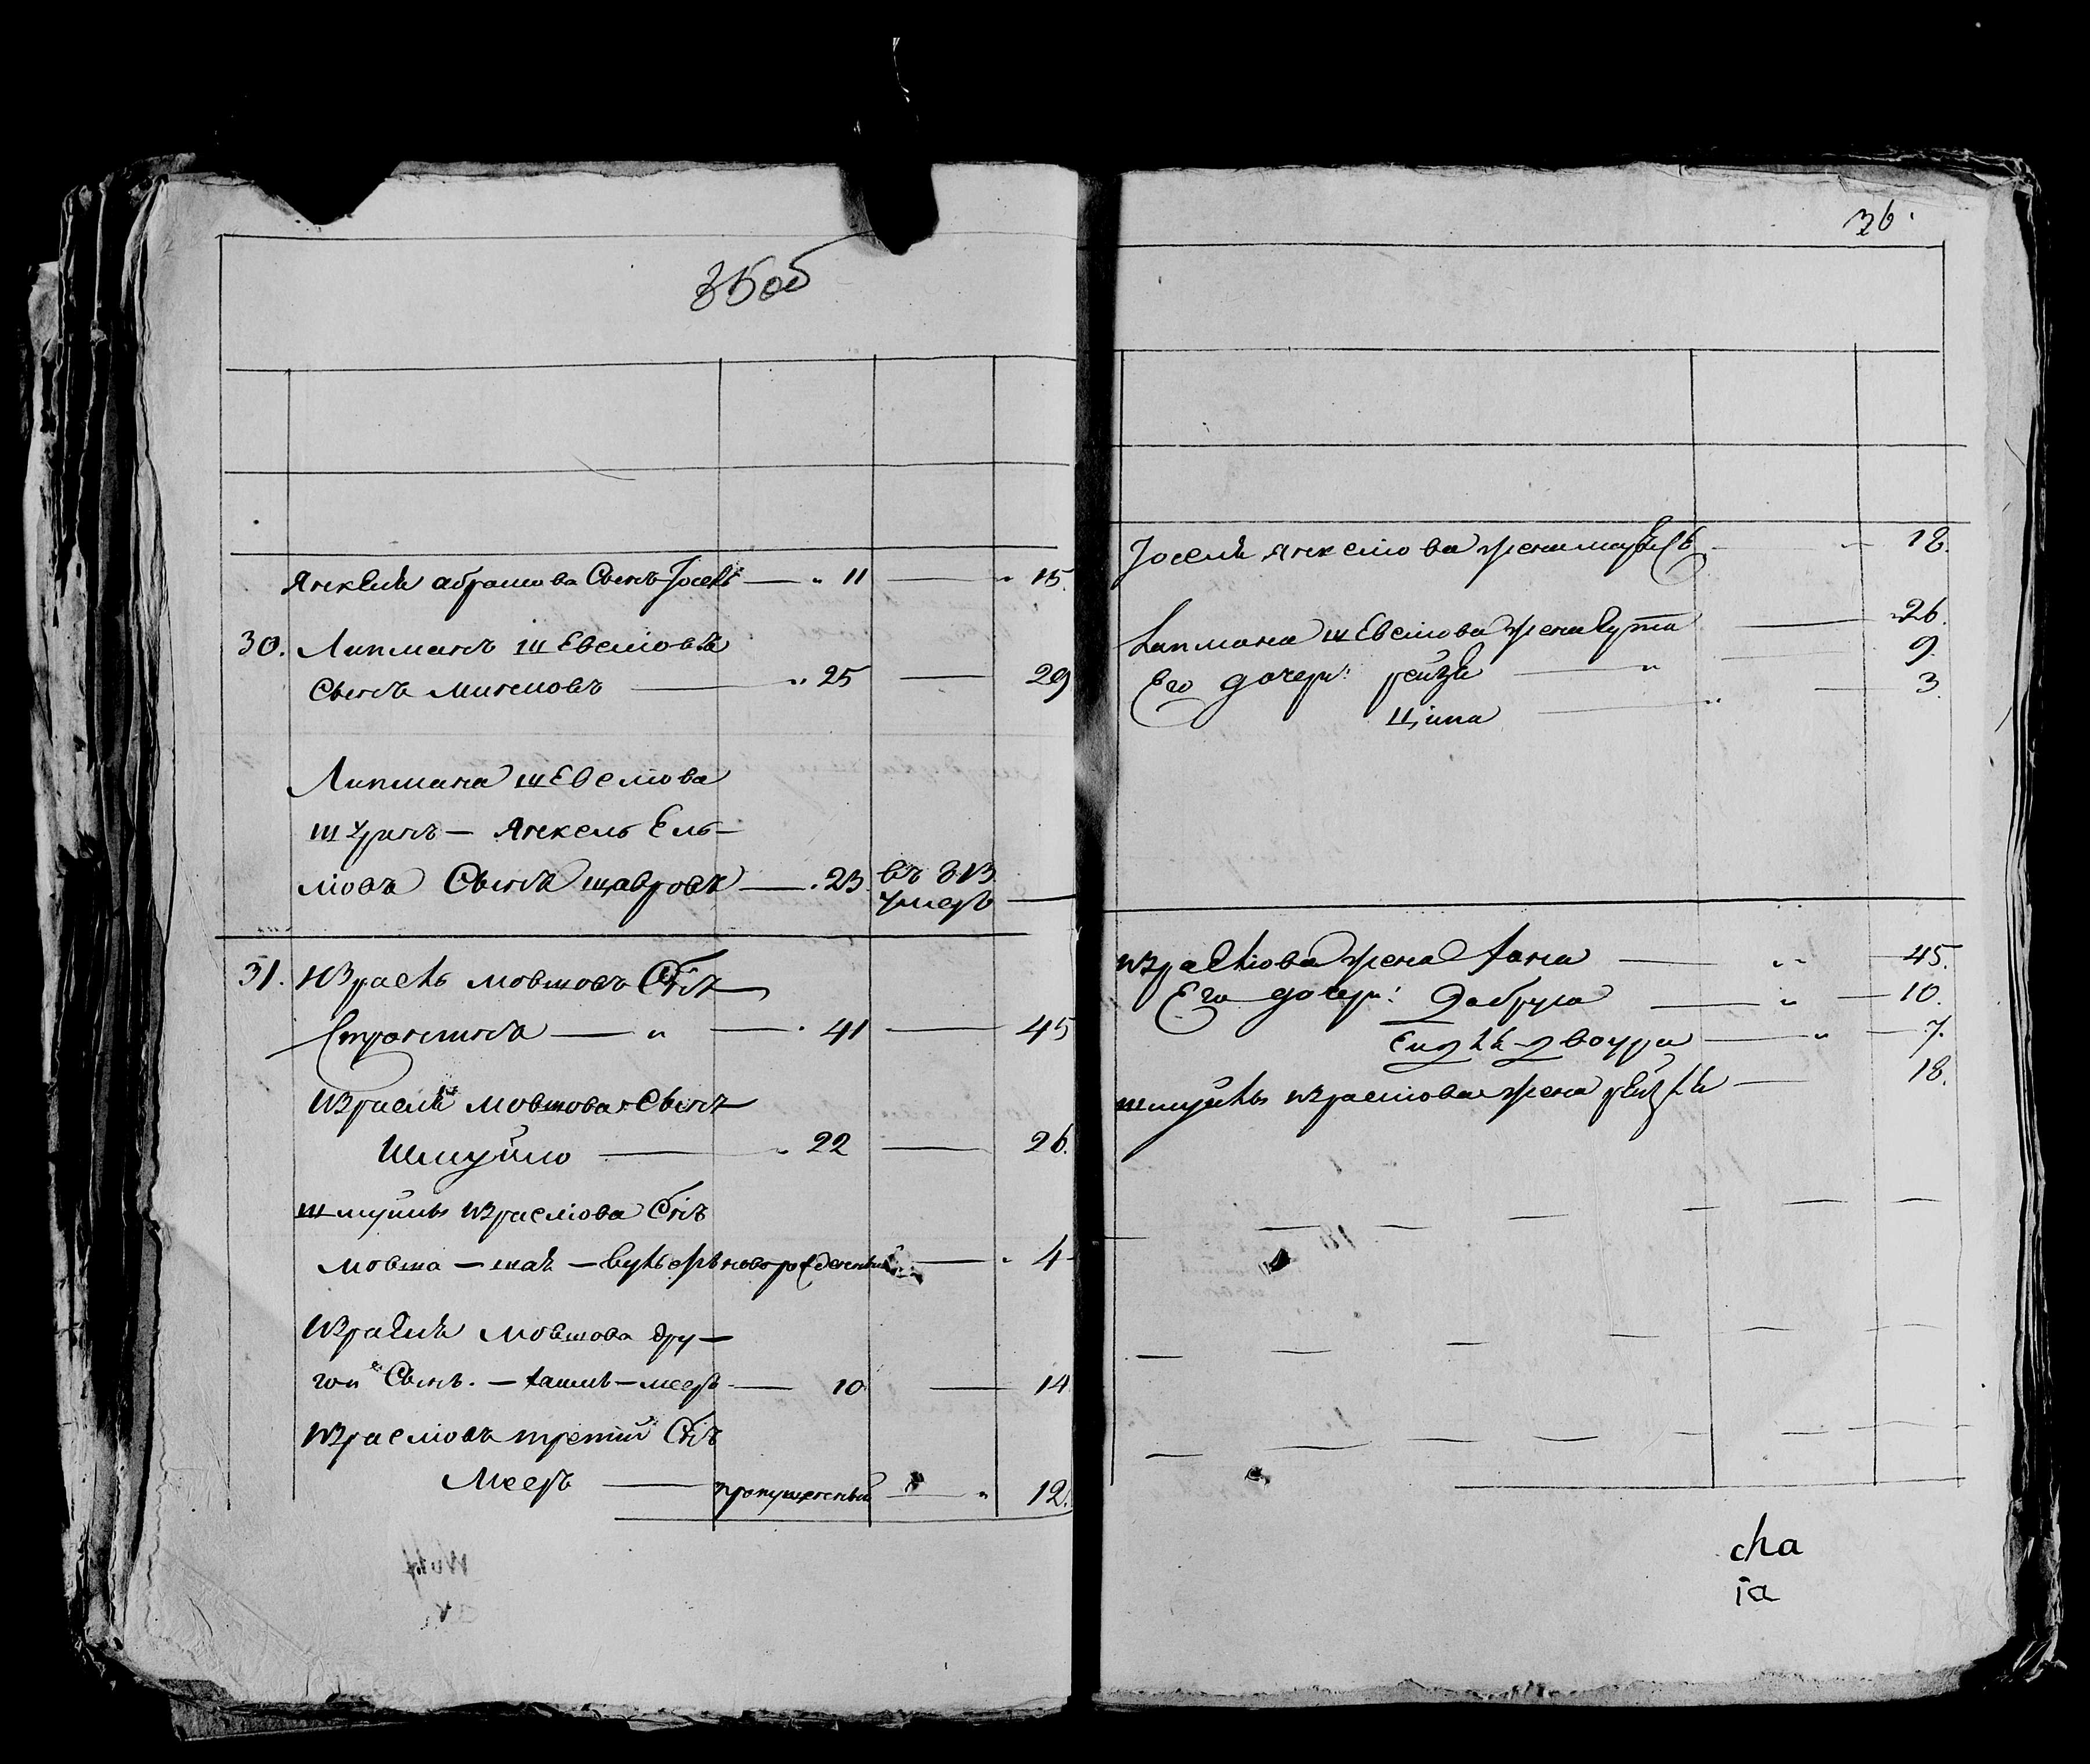 35об
Янкеля абрамова Сынъ Іосель — 11 — 15.
30. Липманъ шЕвеліовъ
Сынъ — 25 — 29
Липмана шЕвеліова
шУринъ — Янкель Ель-
Сынъ — 23 въ 813 Умеръ —
31. Израель мовшовъ Снъ
— 41 — 45
Израеля мовшова Сынъ
Шмуйло — 22 — 26.
шмуйлы израеліова Снъ
мовша — — новорожденный — 4
Израеля мовшова дру-
гой Сынъ. — — мееръ — 10 — 14
Израеліовъ третий Снъ
Мееръ — пропущенный — 12.
36.
Іоселя янкеліова жена — 18.
Липмана шЕвеліова жена — 26.
Его дочери: рейзя — 9
Ципа — 3.
израеліова жена хана — 45.
Его дочери: Добруса — 10.
двоура — 7.
шмуйлы израеліова жена рейзля — 18.